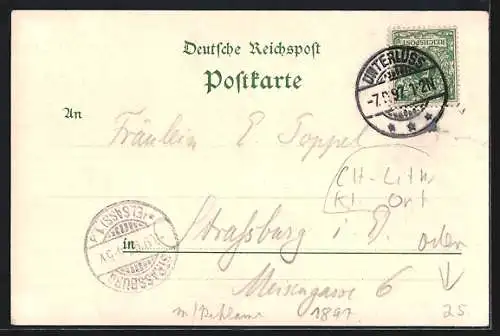 Deutsche Reichspost
Postkarte
REICHSPOST
UNTERLÜSS
-7.9.97. 1-2N.
An
Fräulein E. Toppel
CH-Lith
Kl. Ort
in Straßburg i. E. oder
STRASSBURG (ELSASS)
Meisengasse 6
1897
25